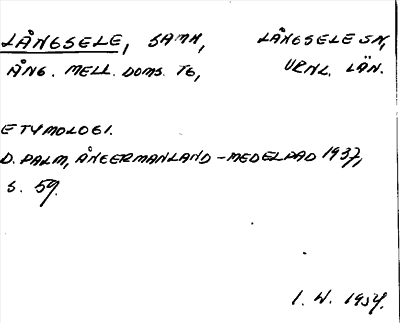 LÅNGSELE, SAMH, LÅNGSELE SN,
ÅNG. MELL. DOMS. TG, VRNL. LÄN.
ETYMOLOGI.
D. PALM, ÅNGERMANLAND - MEDELPAD 1937,
S. 59.
I. W. 1954.